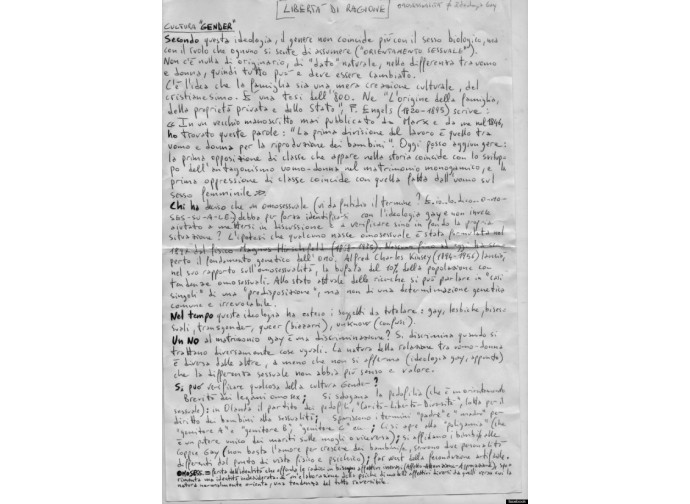 LIBERTÀ DI RAGIONE
CULTURA "GENDER"
Secondo questa ideologia, il genere non coincide più con il sesso biologico, ma
con il ruolo che ognuno si sente di assumere ("ORIENTAMENTO SESSUALE").
Non c'è nulla di originario, di "dato" naturale, nella differenza tra uomo
e donna, quindi tutto può e deve essere cambiato.
C'è l'idea che la famiglia sia una mera creazione culturale, del
cristianesimo. È una tesi dell'800. Ne "L'origine della famiglia,
della proprietà privata e dello Stato", F. Engels (1820-1895) scrive:
« In un vecchio manoscritto mai pubblicato da Marx e da me nel 1846,
ho trovato queste parole: "La prima divisione del lavoro è quella tra
uomo e donna per la riproduzione dei bambini". Oggi posso aggiungere:
la prima opposizione di classe che appare nella storia coincide con lo svilup-
po dell'antagonismo uomo-donna nel matrimonio monogamico, e la
prima oppressione di classe coincide con quella fatta dall'uomo sul
sesso femminile».
Chi ha deciso che un omosessuale (vi dà fastidio il termine?
SES-SU-A-LE) debba per forza identificarsi con l'ideologia gay e non invece
aiutato a mettersi in discussione e a verificare sino in fondo la propria
situazione? L'ipotesi che qualcuno nasce omosessuale è stata formulata nel
Magnus Hirschfeld
perto il fondamento genetico dell'omo. Alfred Charles Kinsey (1894-1956) lanciò,
nel suo rapporto sull'omosessualità, la bufala del 10% della popolazione con
tendenze omosessuali. Allo stato attuale delle ricerche si può parlare in "casi
singoli" di una "predisposizione", ma non di una determinazione genetica
comune e irrevocabile.
Nel tempo questa ideologia ha esteso i soggetti da tutelare: gay, lesbiche, bises-
suali, transgender, queer (bizzarri), unknow (confusi).
Un No al matrimonio gay è una discriminazione? Si discrimina quando si
trattano diversamente cose uguali. La natura della relazione tra uomo-donna
è diversa dalle altre, a meno che non si affermi (ideologia gay, appunto)
che la differenza sessuale non abbia più senso e valore.
Si può verificare qualcosa della cultura Gender?
Brevità dei legami omosex; Si sdogana la pedofilia (che è un orientamento
sessuale): in Olanda il partito dei pedofili, "Carità-Libertà-Diversità", lotta per il
diritto dei bambini alla sessualità; Spariscono i termini "padre" e "madre" per
"genitore A" e "genitore B", "genitore C" ecc; Ci si apre alla "poligamia" (che
è un potere unico dei mariti sulle mogli o viceversa); si affidano i bambini alle
coppie gay (non basta l'amore per crescere dei bambini, servono due personalità
differenti dal punto di vista fisico e psichico);
facebook